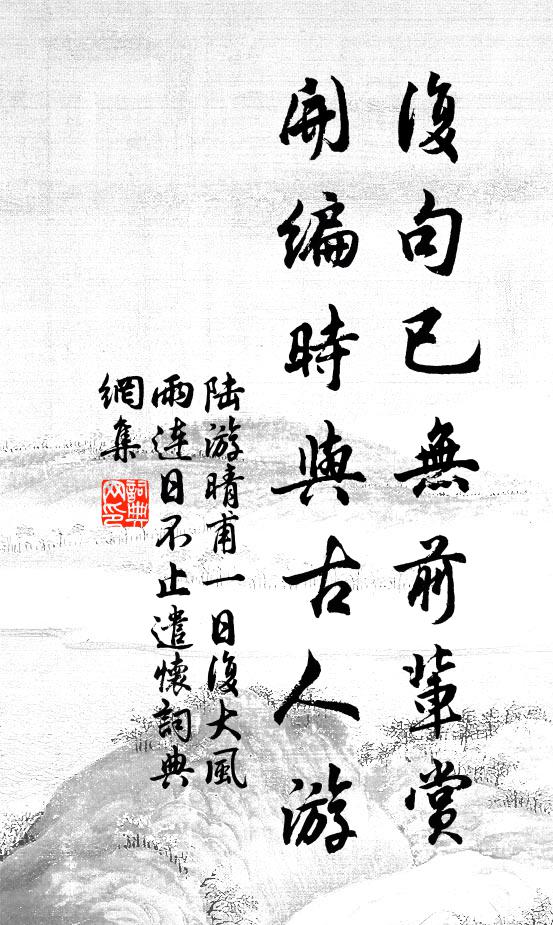 復句已無前輩賞
開編時與古人游
陸游晴甫一日復大風
雨連日不止遣懷詞典
網集
詞典
网印